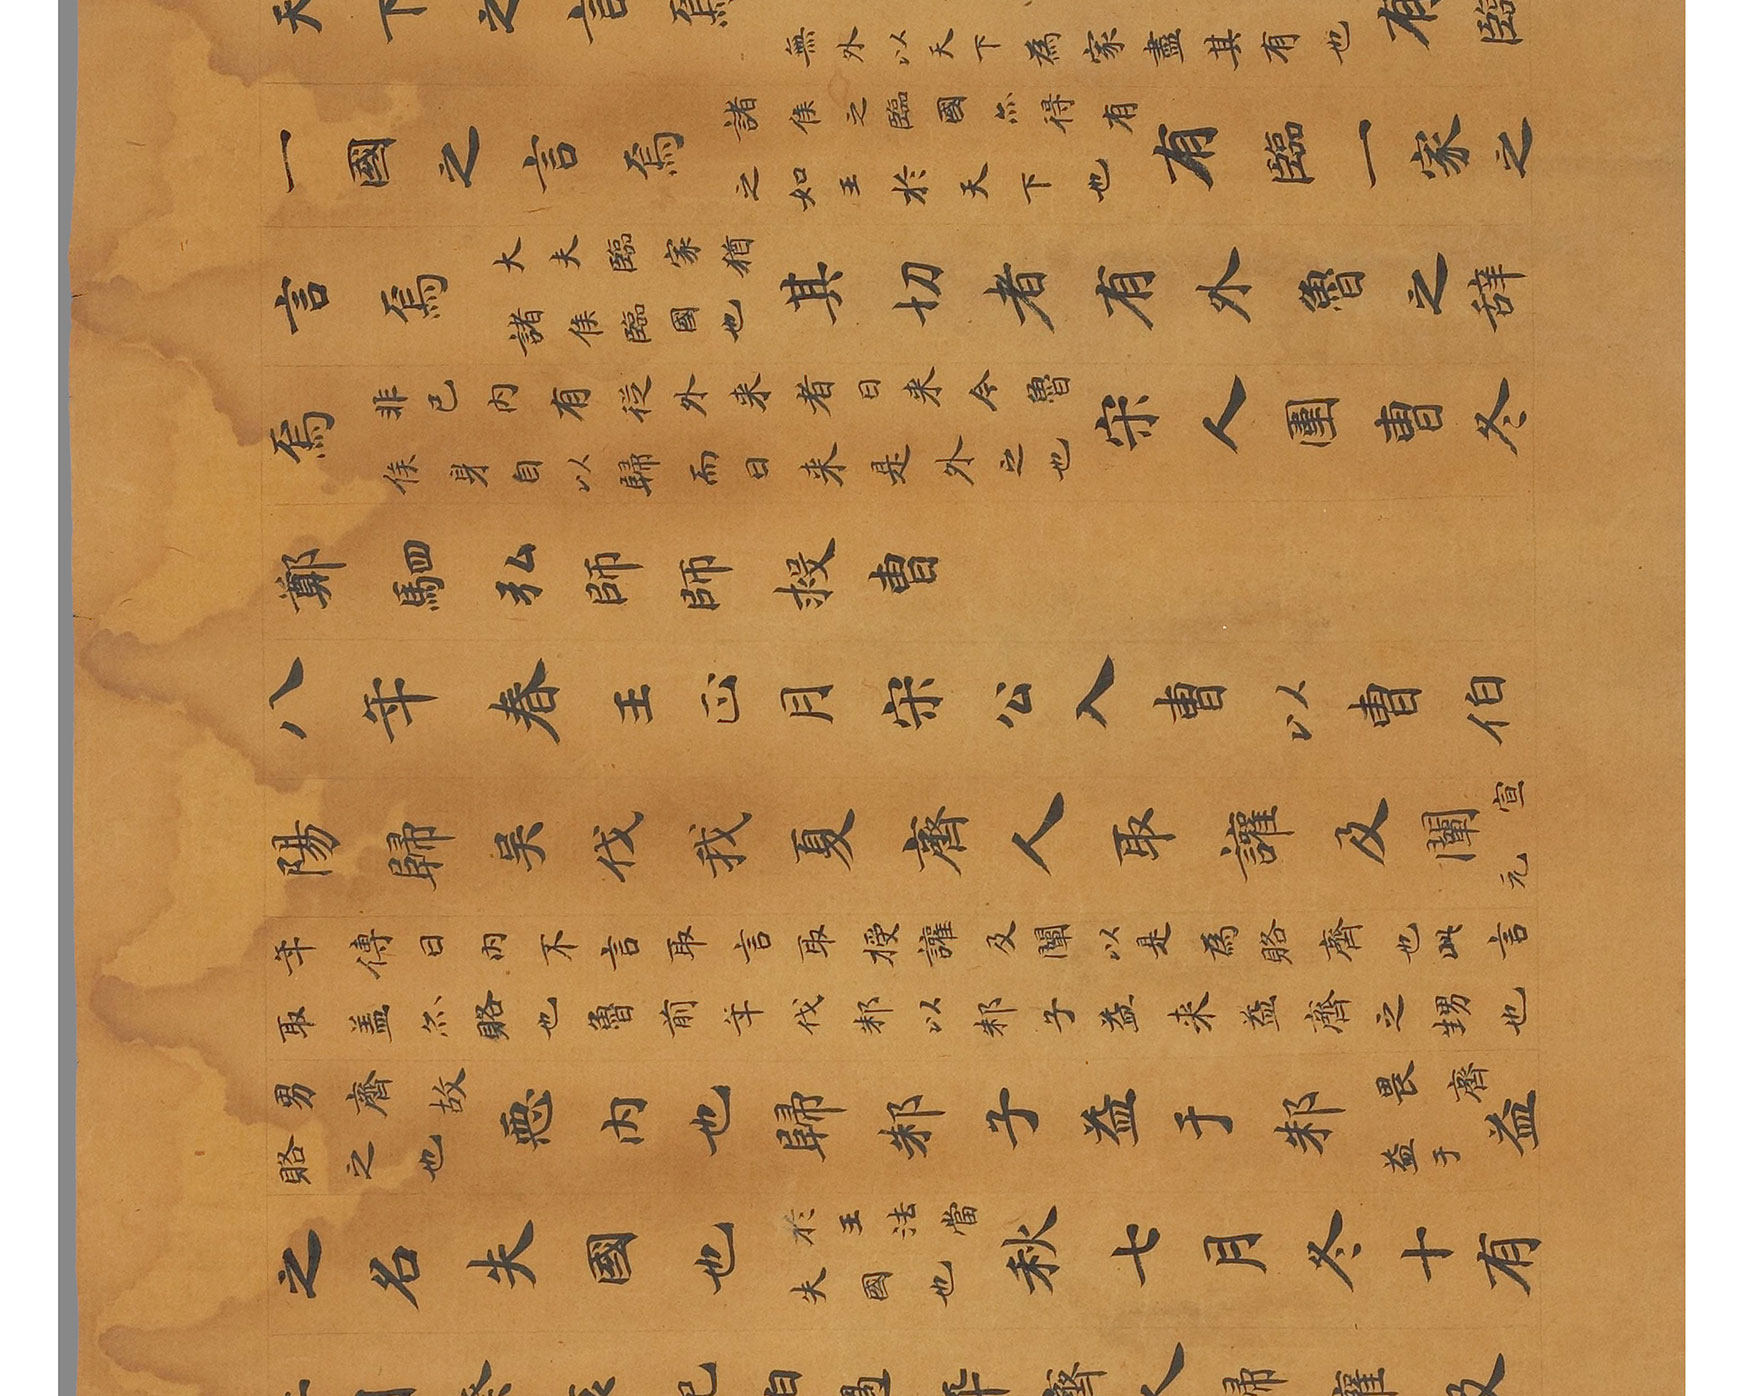 天下之言焉無外以天下為家盡其有也有臨
一國之言焉諸侯之臨國亦得有之如王於天下也有臨一家之
言焉大夫臨家猶諸侯臨國也其切者有外魯之辞
焉非己內有從外来者曰来今魯侯身自以歸而曰来是外之也宋人圍曹冬
鄭駟弘帥師救曹
八年春王正月宋公入曹以曹伯
陽歸吳伐我夏齊人取讙及闡宣元
年傳曰內不言取言取授讙及闡以是為賂齊也此言
取蓋亦賂也魯前年伐邾以邾子益来益齊之甥也
男齊故賂之也惡內也歸邾子益于邾畏齊益于益
之名失國也於王法當失國也秋七月冬十有
齊人歸讙及